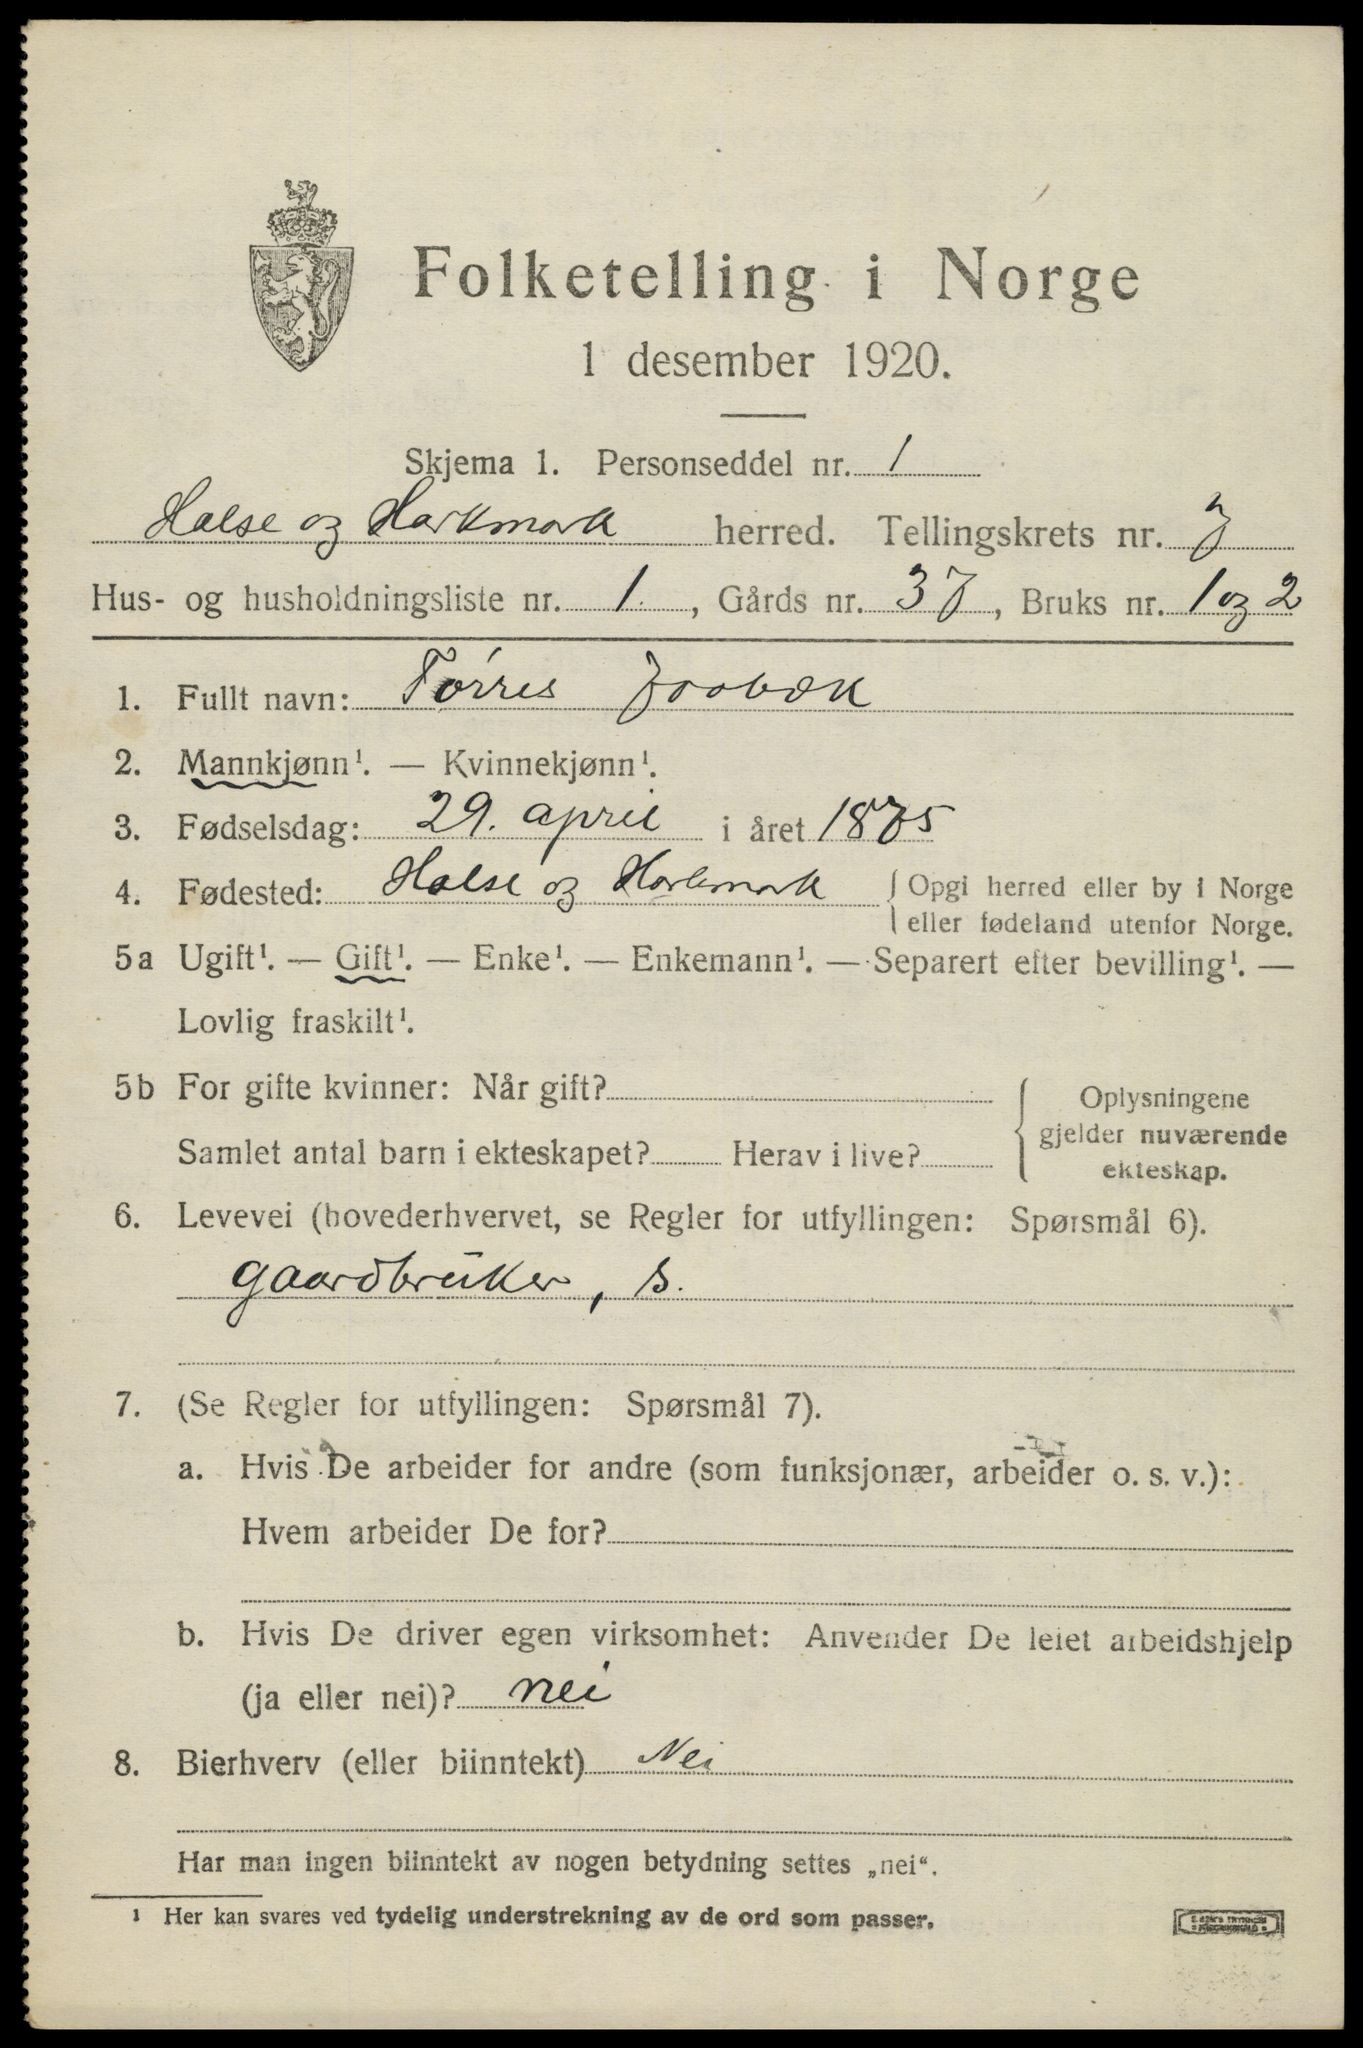 Folketelling i Norge
1 desember 1920.
Skjema 1. Personseddel nr. 1
Halse og Harkmark herred. Tellingskrets nr. 7
Hus- og husholdningsliste nr. 1., Gårds nr. 37, Bruks nr. 1 og 2
1. Fullt navn: Tørres
2. Mannkjønn¹. — Kvinnekjønn¹.
3. Fødselsdag: 29. april i året 1875
4. Fødested: Halse og Harkmark { Opgi herred eller by i Norge
eller fødeland utenfor Norge.
5a Ugift¹. — Gift¹. — Enke¹. — Enkemann¹. — Separert efter bevilling¹. —
Lovlig fraskilt¹.
5b For gifte kvinner: Når gift?
Samlet antal barn i ekteskapet? Herav i live?
Oplysningene
gjelder nuværende
ekteskap.
6. Levevei (hovederhvervet, se Regler for utfyllingen: Spørsmål 6).
gaardbruker, s.
7. (Se Regler for utfyllingen: Spørsmål 7).
a. Hvis De arbeider for andre (som funksjonær, arbeider o. s. v.):
Hvem arbeider De for?
b. Hvis De driver egen virksomhet: Anvender De leiet arbeidshjelp
(ja eller nei)? nei
8. Bierhverv (eller biinntekt) Nei
Har man ingen biinntekt av nogen betydning settes „nei“.
¹ Her kan svares ved tydelig understrekning av de ord som passer.